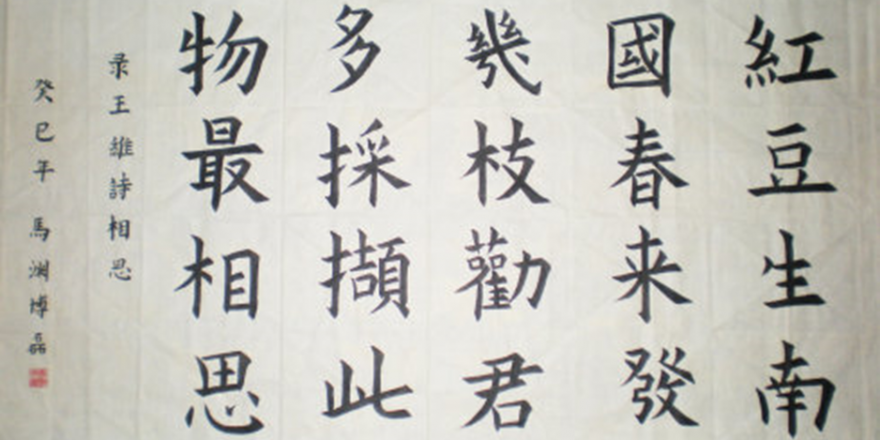 紅豆生南
國春来發
幾枝勸君
多採擷此
物最相思
录王維詩相思
癸巳年 馬澜博磊